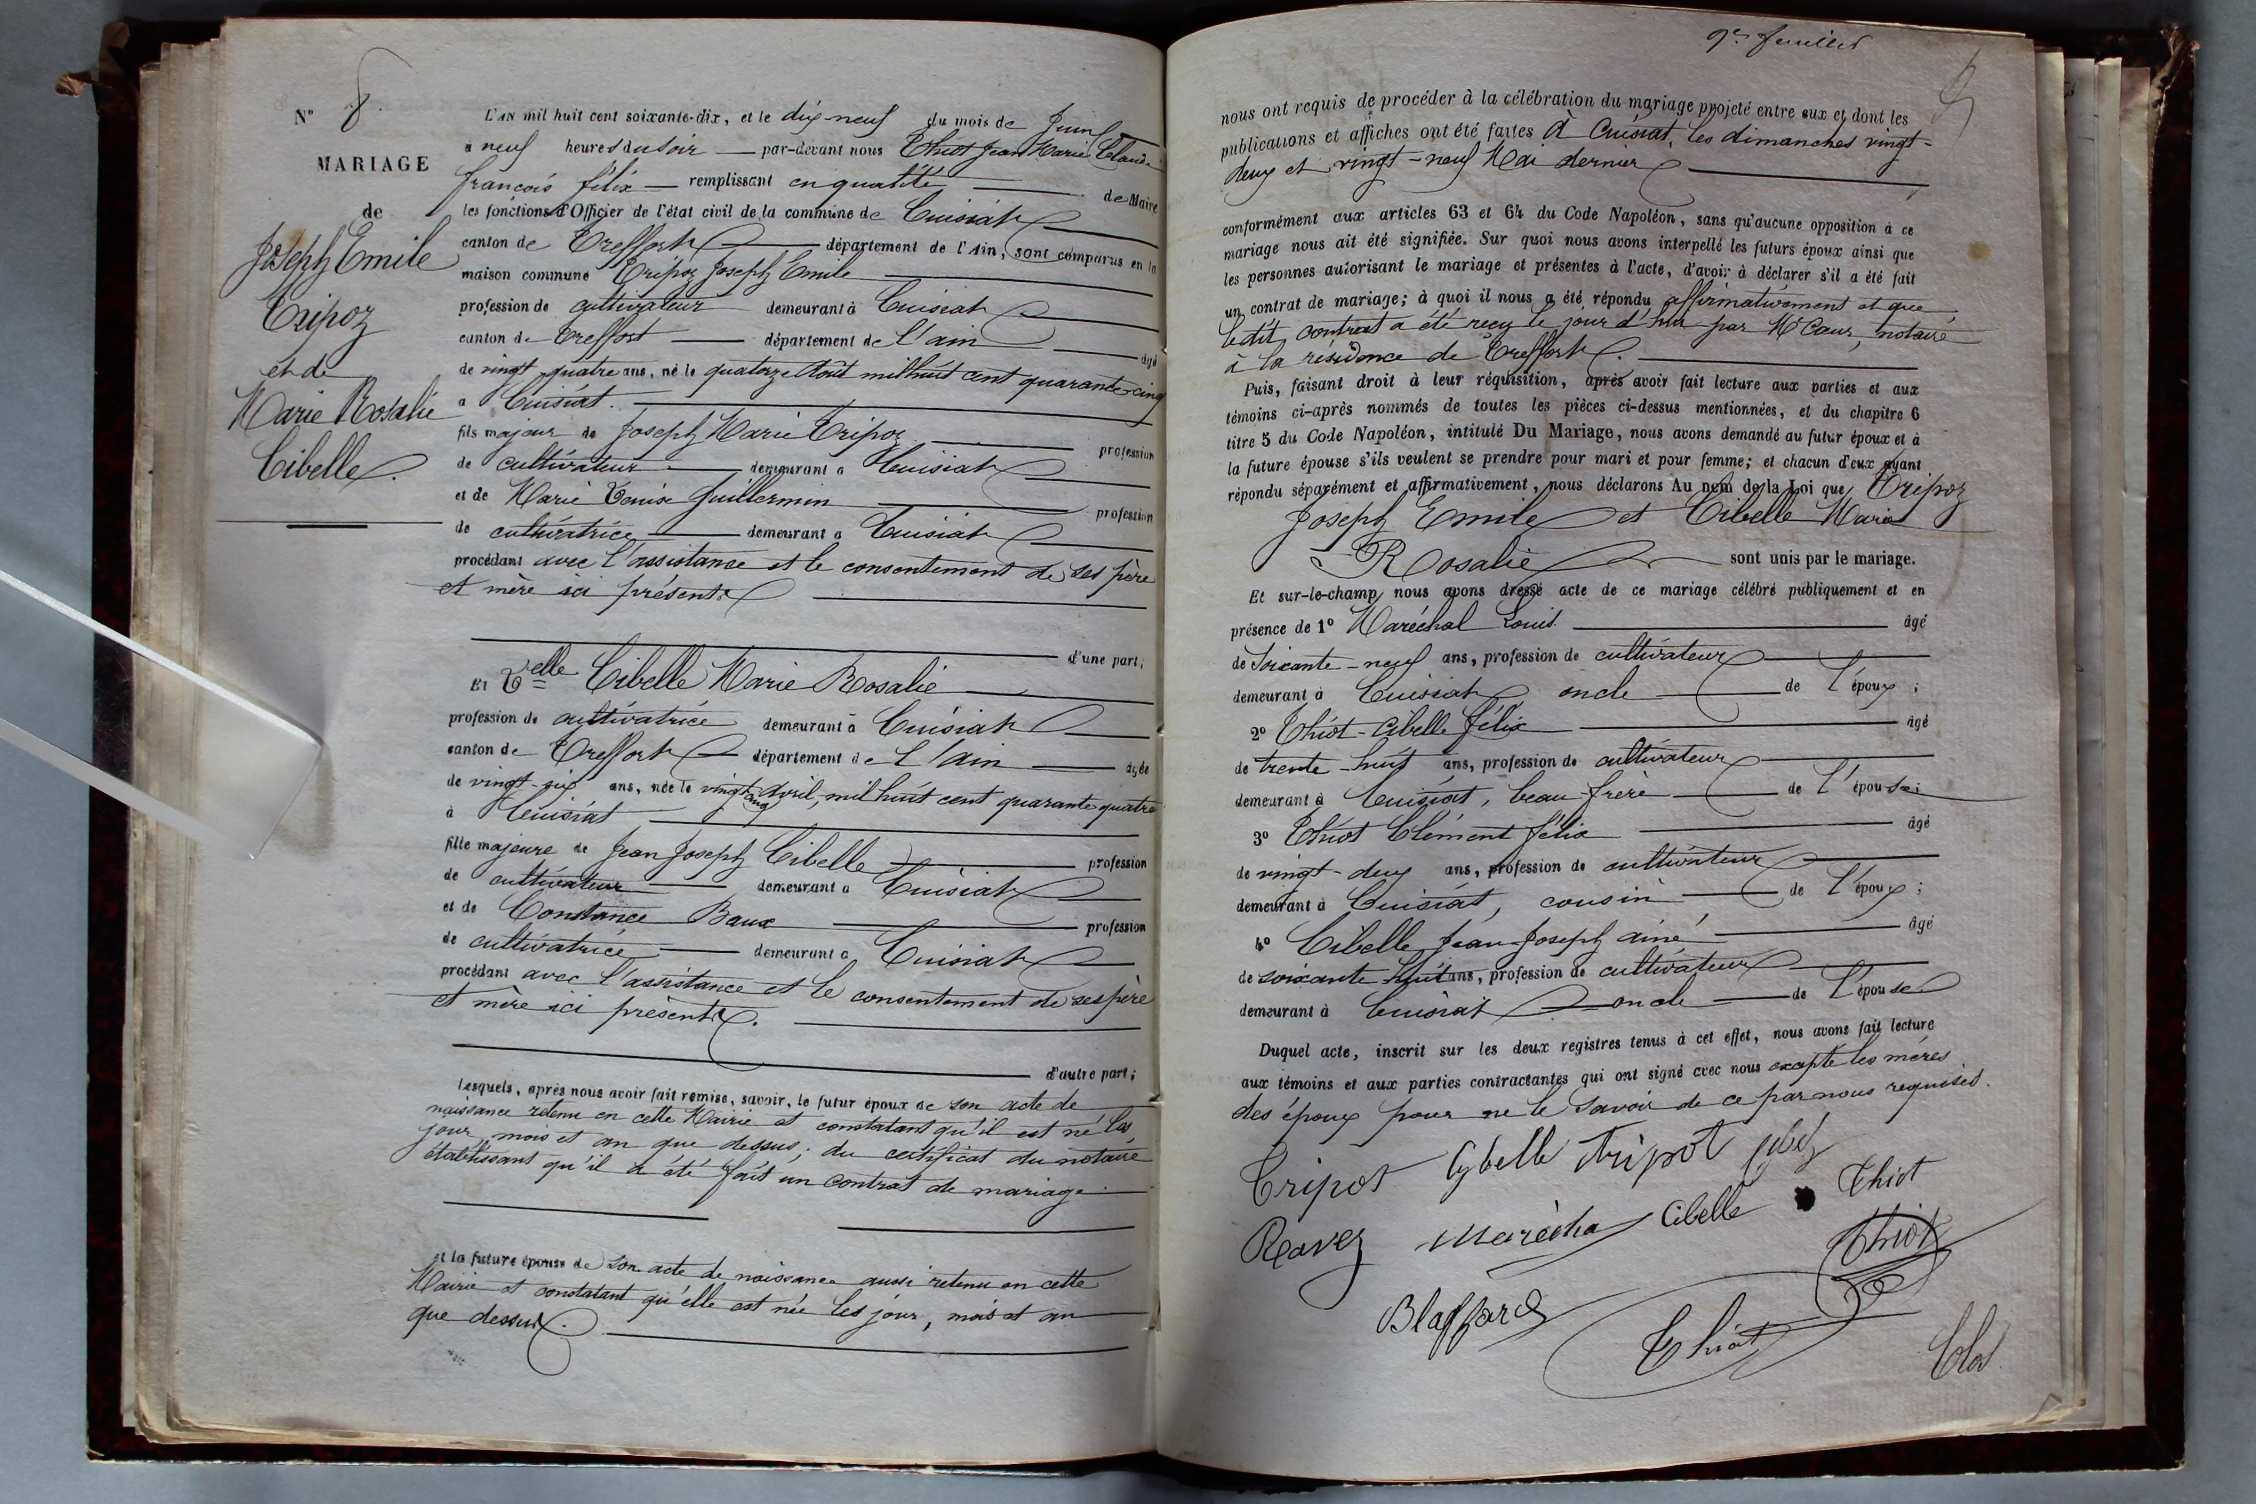 N° 8
MARIAGE
de
Joseph Emile
Tripoz
et de
Marie Rosalie
Cibelle.
L'AN mil huit cent soixante-dix, et le dix-neuf du mois de Juin
a neuf heures du soir par-devant nous Thiot Jean Marie Claude
françois félix remplissant en qualité de Maire
les fonctions d'Officier de l'état civil de la commune de Cuisiat
canton de Treffort département de l'Ain, sont comparus en la
maison commune Tripoz Joseph Emile
profession de cultivateur demeurant à Cuisiat
canton de Treffort département de l'ain âgé
de vingt quatre ans, né le quatorze Août mil huit cent quarante-cinq
a Cuisiat.
fils majeur de Joseph Marie Tripoz profession
de cultivateur demeurant a Cuisiat
et de Marie Guillermin profession
de cultivatrice demeurant a Cuisiat
procédant avec l'assistance et le consentement de ses père
et mère ici présents
d'une part;
Et Delle Cibelle Marie Rosalie
profession de cultivatrice demeurant à Cuisiat
canton de Treffort département de L'ain âgée
de vingt-six ans, née le vingt cinq Avril, mil huit cent quarante quatre
à Cuisiat
fille majeure de Jean Joseph Cibelle profession
de cultivateur demeurant a Cuisiat
et de Constance Baux profession
de cultivatrice demeurant a Cuisiat
procédant avec l'assistance et le consentement de ses père
et mère ici présents.
d'autre part;
lesquels, après nous avoir fait remise, savoir, le futur époux de son acte de
naissance retenu en cette Mairie et constatant qu'il est né les
jour, mois et an que dessus; du certificat du notaire
établissant qu'il a été fait un contrat de mariage.
et la future épouse de son acte de naissance aussi retenu en cette
Mairie et constatant qu'elle est née les jour, mois et an
que dessus.
9e feuillet
nous ont requis de procéder à la célébration du mariage projeté entre eux et dont les
publications et affiches ont été faites à Cuisiat, les dimanches vingt-
deux et vingt-neuf Mai dernier
conformément aux articles 63 et 64 du Code Napoléon, sans qu'aucune opposition à ce
mariage nous ait été signifiée. Sur quoi nous avons interpellé les futurs époux ainsi que
les personnes autorisant le mariage et présentes à l'acte, d'avoir à déclarer s'il a été fait
un contrat de mariage; à quoi il nous a été répondu affirmativement et que
ledit contrat a été reçu le jour d'hui par Me Cœur, notaire
à la résidence de Treffort.
Puis, faisant droit à leur réquisition, après avoir fait lecture aux parties et aux
témoins ci-après nommés de toutes les pièces ci-dessus mentionnées, et du chapitre 6
titre 5 du Code Napoléon, intitulé Du Mariage, nous avons demandé au futur époux et à
la future épouse s'ils veulent se prendre pour mari et pour femme; et chacun d'eux ayant
répondu séparément et affirmativement, nous déclarons Au nom de la Loi que Tripoz
Joseph Emile et Cibelle Marie
Rosalie sont unis par le mariage.
Et sur-le-champ nous avons dressé acte de ce mariage célébré publiquement et en
présence de 1° Maréchal Louis âgé
de soixante-neuf ans, profession de cultivateur
demeurant à Cuisiat oncle de l'époux;
2° Thiot-Cibelle félix âgé
de trente-huit ans, profession de cultivateur
demeurant à Cuisiat, beau-frère de l'épouse;
3° Thiot Clément félix âgé
de vingt-deux ans, profession de cultivateur
demeurant à Cuisiat, cousin de l'époux;
4° Cibelle Jean Joseph ainé âgé
de soixante huit ans, profession de cultivateur
demeurant à Cuisiat oncle de l'épouse
Duquel acte, inscrit sur les deux registres tenus à cet effet, nous avons fait lecture
aux témoins et aux parties contractantes qui ont signé avec nous excepté les mères
des époux pour ne le savoir de ce par nous requises.
Tripot Cybelle tripot
Thiot
Ravez Marécha Cibelle
Thiot
Blaffard
Thiot